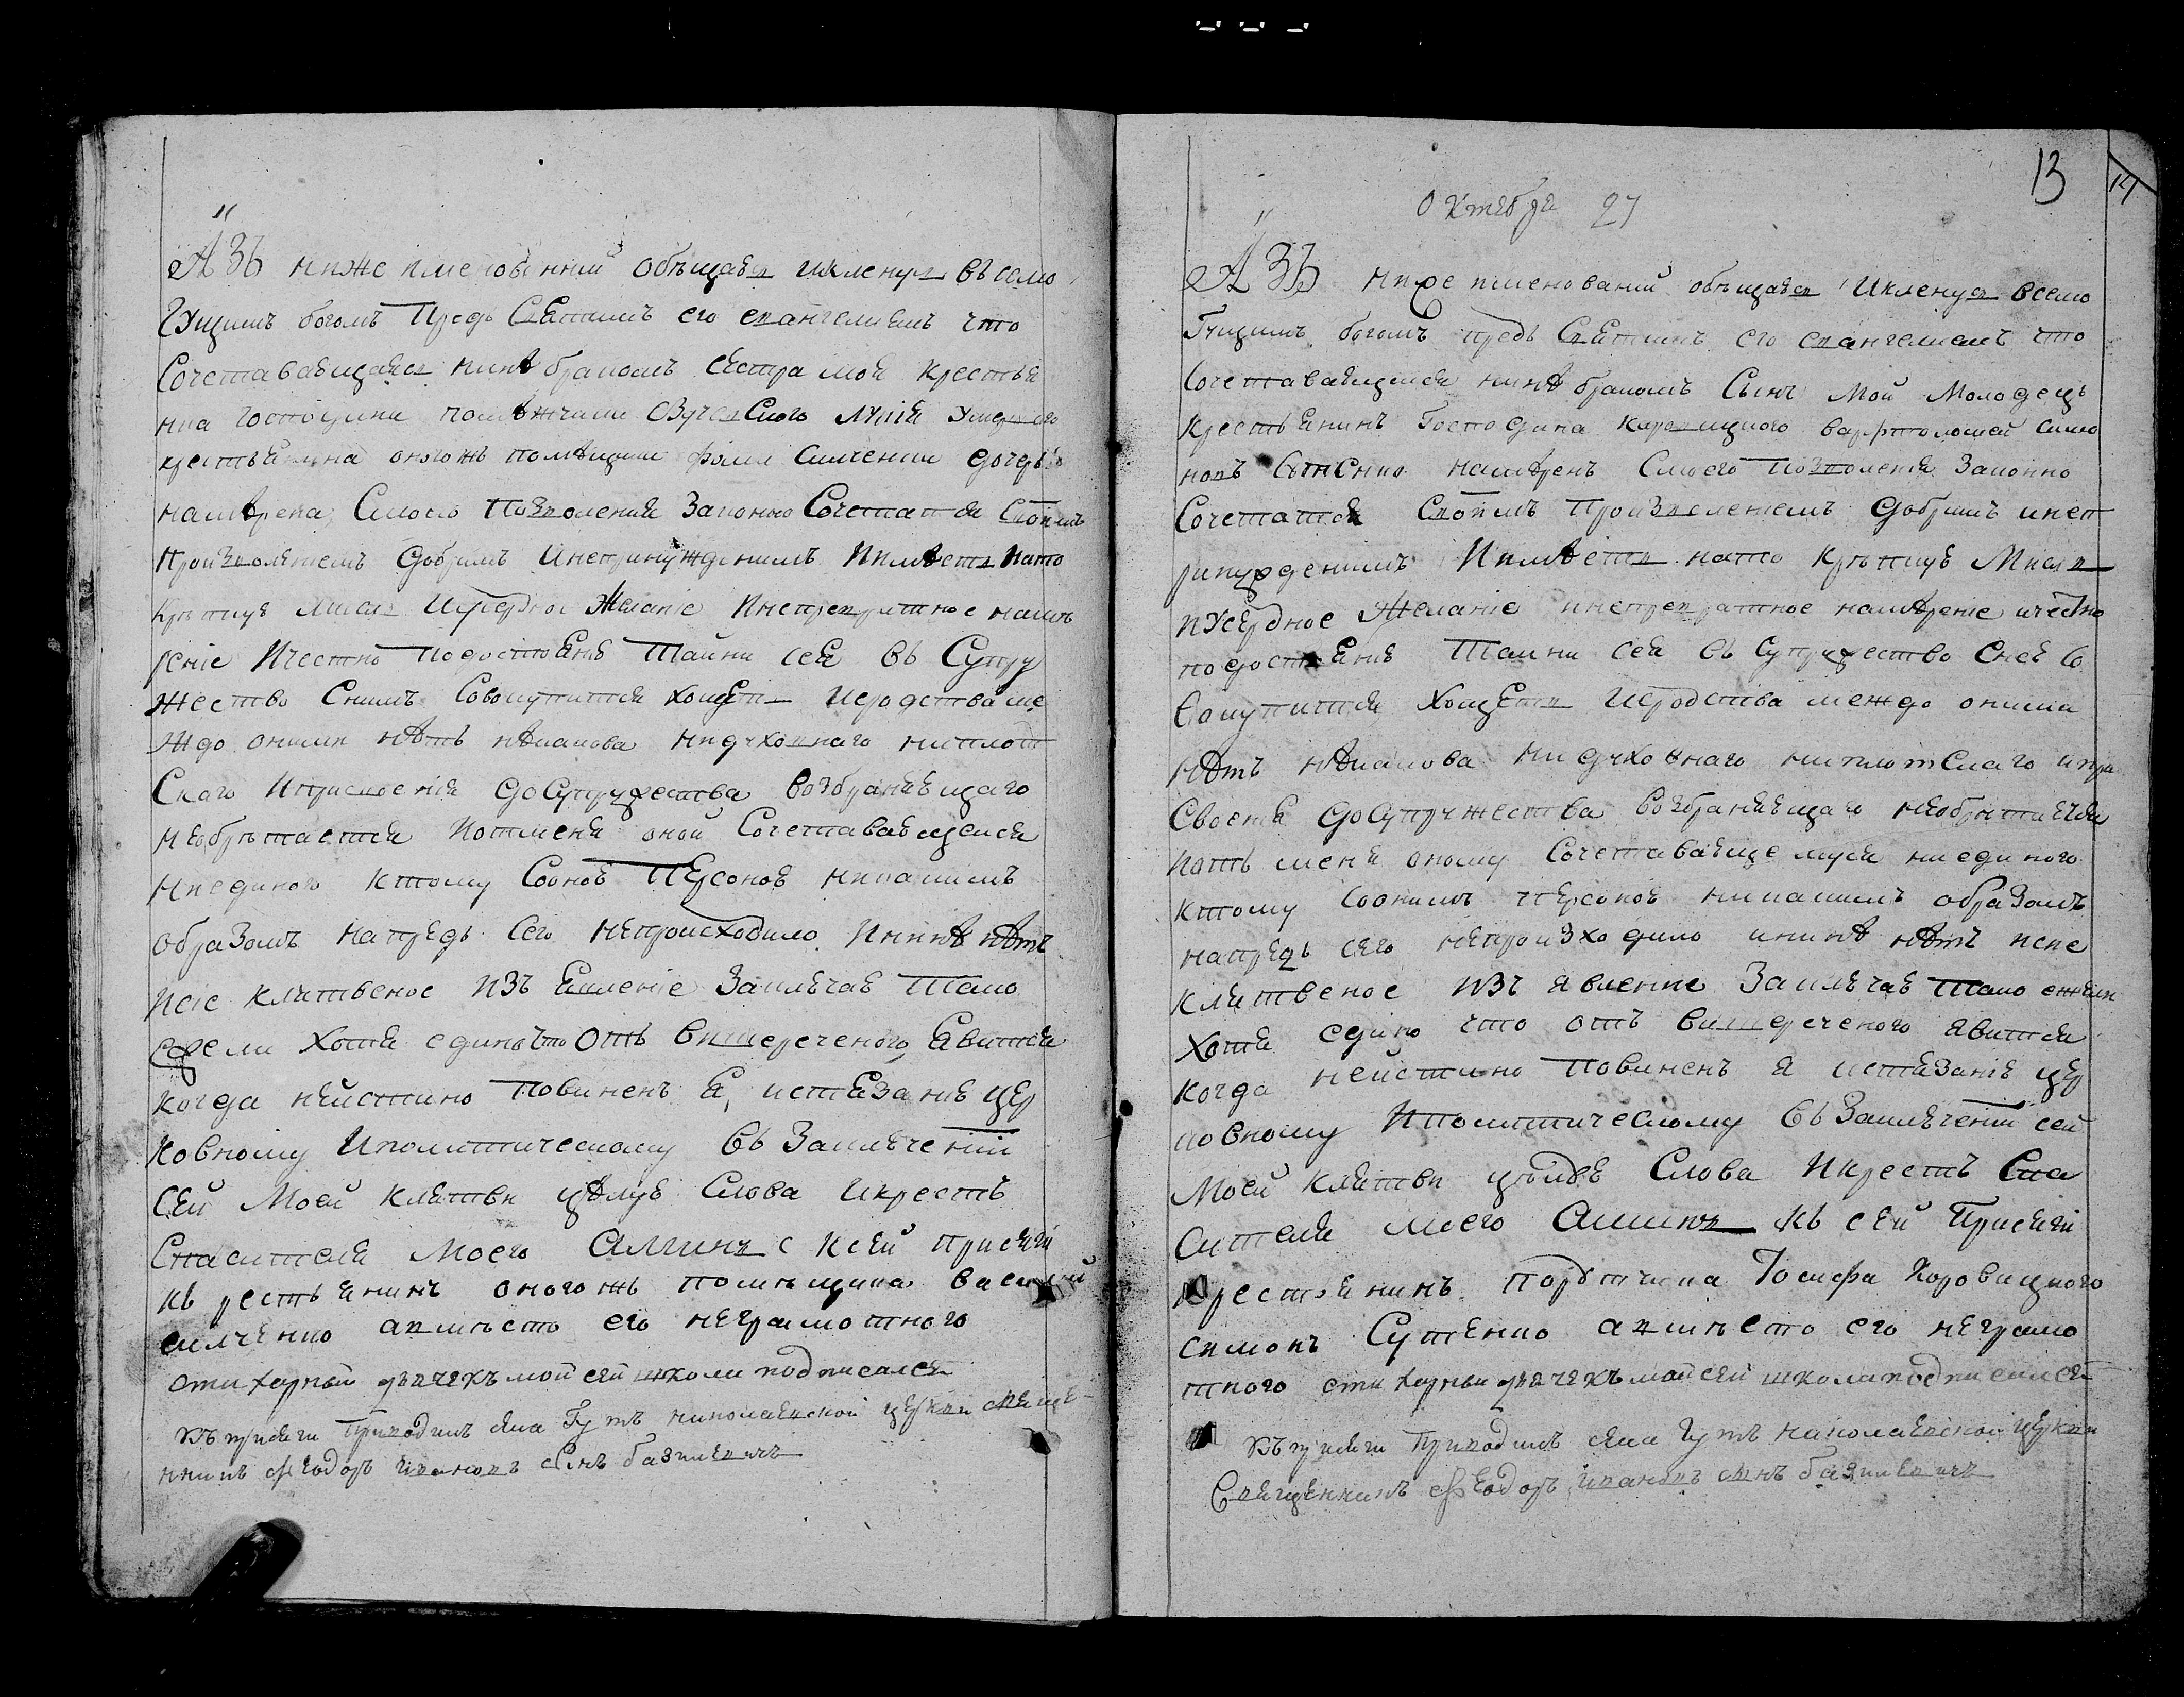 Азъ ниже имеобнний объщаюся икленуся въсемо
гущимъ богомъ Предъ Святимъ его евангелиемъ что
Сочетаваюцаяся нинѣ бракомъ сестра моя крестья
нка господини помѣжчики
крестьянина оногожъ помѣщики дочерью
намѣрена, Смоего Позволения Законно Сочетатся Своимъ
Произволениемъ Добримъ Инепринужденнимъ Имѣетъ Нато
крѣпкую мисль Иусердное Желание Инепревратное намѣ
рение Ичестно подостояню Тайни сея въ Супру
жество Снимъ Совокупится хощетъ Иеродства ме
ждо оними нѣтъ нѣкакова нидуховнаго ниплот
Скаго Иприсвоения доСупружества возбраняющаго
необрѣтается Иотменя оной Сочетавающейся
ниединого ктому Соеною Персоною никакимъ
образомъ напредъ Сего непроисходило Ининѣ нѣтъ
исие клятвеное ИЗъ Явление Заключаю Тако
Ежели Хотя единоѣто Отъ вишереченого Явится
когда неистино Повиненъ Я, истязанию цер
ковному Иполитическому Въ Заключений
Сей Моей клятви цѣлую Слова Икрестъ
Спасителя Моего Аминь с ксей присяги
кърестьянинъ оногожъ помѣщика василий
силченко авмѣсто его неграмотного
стихарный дьячекъ мойсей школи подписался
Къ присяги Приводилъ села Гутъ николаевской церкви свяще
нникъ Федоръ Ивановъ Синъ базилевичъ
13 14
Октября 27
Азъ ниже именований объщаюся Икленуся всемо
Гущимъ богомъ предъ Святимъ его евангелиемъ что
Сочетаваящейся нинѣ бракомъ Синъ Мой Молодецъ
крестьянинъ Господина варфоломей симо
новъ намѣренъ Смоего Позволения Законно
Сочетатся Своимъ Произволениемъ Добримъ инеп
ринужденнимъ Имѣетъ нато крѣпкую Мисль
иУсердное Желание инепревратное намѣрение ичестно
подостояню Таини сея въ Супружество Снею Со
вокупится Хощетъ Иеродства междо оними
нѣтъ нѣкакова нидуховнаго ниплотскаго ипри
Своетя доСупружества Возбраняющаго необрѣтается
Иотъ меня оному Сочетаваящемуся ниединого
ктому Соонимъ персоною никакимъ образомъ
напредъ сего непроизходило инине нѣтъ исие
клятвеное ИЗъ явление Заключаю Тако ежели
хотя едино что отъ вишереченого явится
когда неистино Повиненъ я истязанию цер
ковному Иполитическому Въ Заключении сей
Моей клятви цѣлую Слова Икрестъ Спа
сителя моего Аминь Къ сей Присяги
крестьянинъ порутчика Иосифа Коровицкого
симонъ Сутенко авмѣсто его неграмо
тного стихарный дьячекъ мойсей школи подписался
Къ присяги Приводилъ села Гутъ николаевской церкви
Священникъ Федоръ Ивановъ синъ базилевичъ